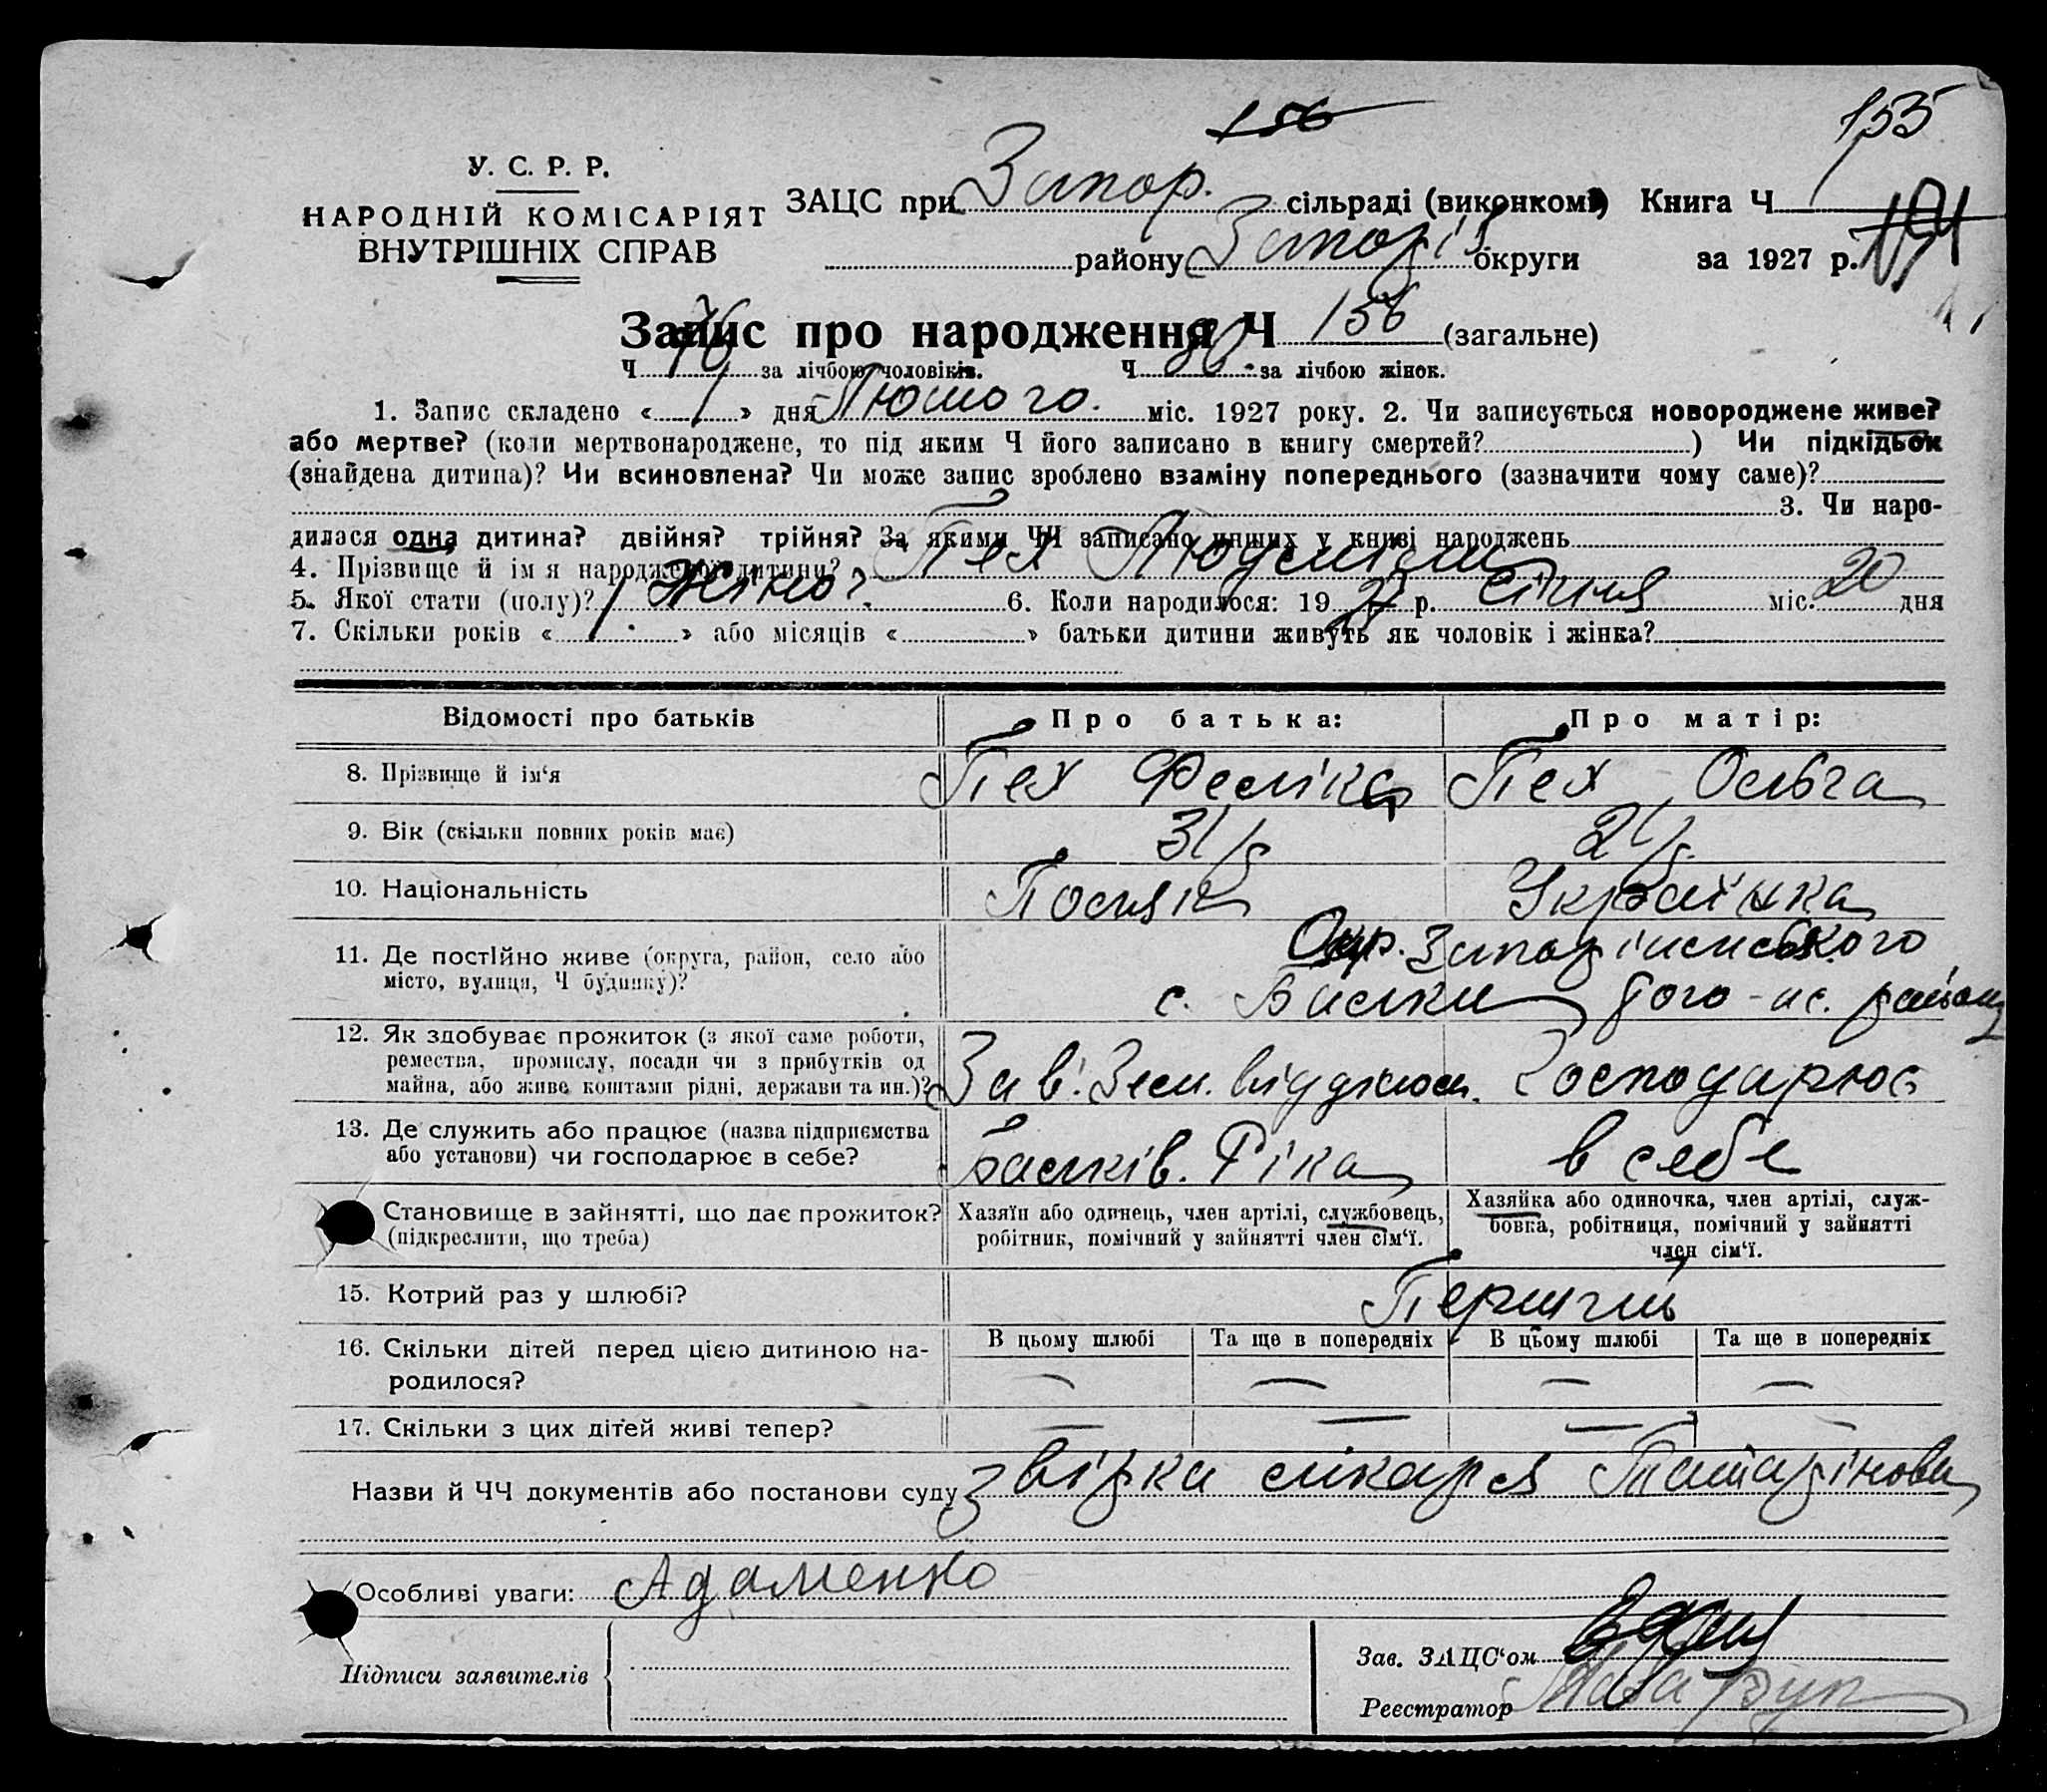 156
155
У. С. Р. Р.
НАРОДНІЙ КОМІСАРІЯТ
ВНУТРІШНІХ СПРАВ
ЗАЦС при Запор. сільраді (виконкомі) Книга Ч
району Запоріз округи за 1927 р. 154
Запис про народження Ч 156 (загальне)
Ч 76 за лічбою чоловіків. Ч 80 за лічбою жінок.
1. Запис складено « 1 » дня Лютого міс. 1927 року. 2. Чи записується новороджене живе?
або мертве? (коли мертвонароджене, то під яким Ч його записано в книгу смертей? ) Чи підкідьок
(знайдена дитина)? Чи всиновлена? Чи може запис зроблено взаміну попереднього (зазначити чому саме)?
3. Чи наро-
дилася одна дитина? двійня? трійня? За якими ЧЧ записано инших у книзі народжень
4. Прізвище й ім я народженої дитини? Пех Людмила
5. Якої стати (полу)? Жіноч. 6. Коли народилося: 1927 р. Січня міс. 20 дня
7. Скільки років « 1 » або місяців « » батьки дитини живуть як чоловік і жінка?
Відомості про батьків Про батька: Про матір:
8. Прізвище й ім‘я Пех Фелікс Пех Ольга
9. Вік (скільки повних років має) 31 р 21 р.
10. Національність Поляк Українка
11. Де постійно живе (округа, район, село або Окр. Запорізького
місто, вулиця, Ч будинку)? с. Балки того-ж. району
12. Як здобуває прожиток (з якої саме роботи,
ремества, промислу, посади чи з прибутків од
майна, або живе коштами рідні, держави та ин.)? Зав. Зем. відділом. Господарює
13. Де служить або працює (назва підприємства
або установи) чи господарює в себе? Балків. Ріка в себе
Становище в зайнятті, що дає прожиток?
(підкреслити, що треба)
Хазяїн або одинець, член артілі, службовець,
робітник, помічний у зайнятті член сім‘ї.
Хазяйка або одиночка, член артілі, служ-
бовка, робітниця, помічний у зайнятті
член сім‘ї.
15. Котрий раз у шлюбі? Перший
16. Скільки дітей перед цією дитиною на-
родилося?
В цьому шлюбі Та ще в попередніх В цьому шлюбі Та ще в попередніх
— — — —
17. Скільки з цих дітей живі тепер? — — — —
Назви й ЧЧ документів або постанови суду звірка лікаря Татарінова
Особливі уваги: Адаменко
Підписи заявителів
Зав. ЗАЦС‘ом
Реєстратор